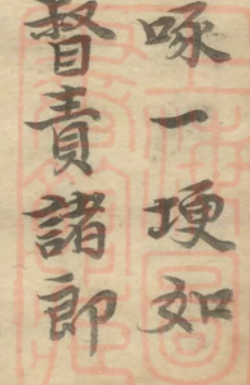 啄一埂如
督責諸郎